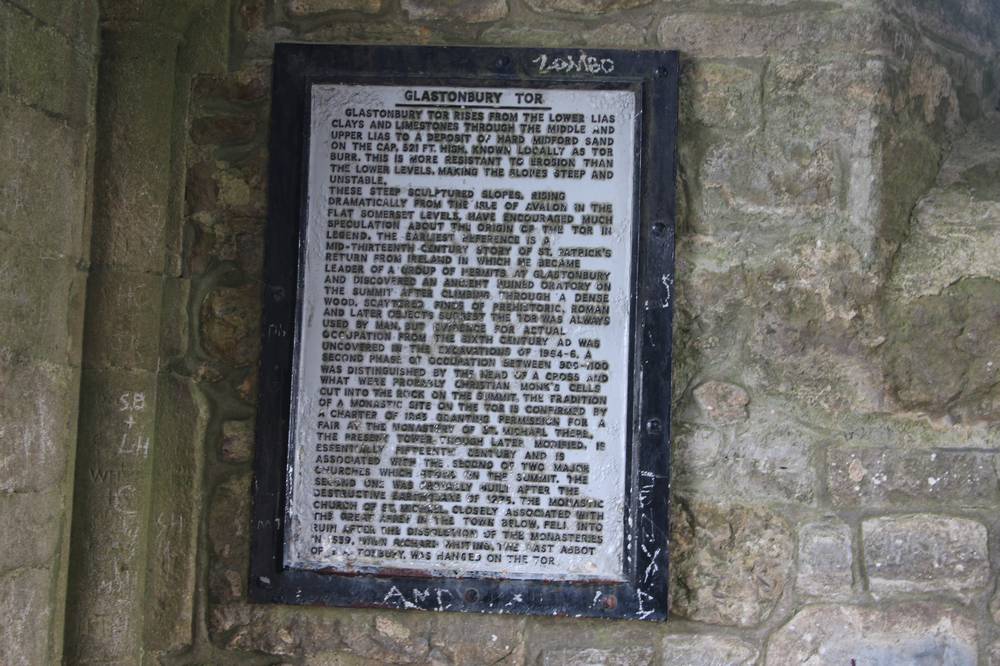 ZOMBO
GLASTONBURY TOR
GLASTONBURY TOR RISES FROM THE LOWER LIAS
CLAYS AND LIMESTONES THROUGH THE MIDDLE AND
UPPER LIAS TO A DEPOSIT OF HARD MIDFORD SAND
ON THE CAP, 521 FT. HIGH, KNOWN LOCALLY AS TOR
BURR. THIS IS MORE RESISTANT TO EROSION THAN
THE LOWER LEVELS, MAKING THE SLOPES STEEP AND
UNSTABLE.
THESE STEEP SCULPTURED SLOPES, RISING
DRAMATICALLY FROM THE ISLE OF AVALON IN THE
FLAT SOMERSET LEVELS, HAVE ENCOURAGED MUCH
SPECULATION ABOUT THE ORIGIN OF THE TOR IN
LEGEND. THE EARLIEST REFERENCE IS A
MID-THIRTEENTH CENTURY STORY OF ST. PATRICK'S
RETURN FROM IRELAND IN WHICH HE BECAME
LEADER OF A GROUP OF HERMITS AT GLASTONBURY
AND DISCOVERED AN ANCIENT RUINED ORATORY ON
THE SUMMIT AFTER CLIMBING THROUGH A DENSE
WOOD. SCATTERED FINDS OF PREHISTORIC, ROMAN
AND LATER OBJECTS SUGGEST THE TOR WAS ALWAYS
USED BY MAN, BUT EVIDENCE FOR ACTUAL
OCCUPATION FROM THE SIXTH CENTURY AD WAS
UNCOVERED IN THE EXCAVATIONS OF 1964-6. A
SECOND PHASE OF OCCUPATION BETWEEN 900-1100
WAS DISTINGUISHED BY THE HEAD OF A CROSS AND
WHAT WERE PROBABLY CHRISTIAN MONK'S CELLS
CUT INTO THE ROCK ON THE SUMMIT. THE TRADITION
OF A MONASTIC SITE ON THE TOR IS CONFIRMED BY
A CHARTER OF 1243 GRANTING PERMISSION FOR A
FAIR AT THE MONASTERY OF ST. MICHAEL THERE.
THE PRESENT TOWER THOUGH LATER MODIFIED, IS
ESSENTIALLY FIFTEENTH CENTURY AND IS
ASSOCIATED WITH THE SECOND OF TWO MAJOR
CHURCHES WHICH STOOD ON THE SUMMIT. THE
SECOND ONE WAS PROBABLY BUILT AFTER THE
DESTRUCTIVE EARTHQUAKE OF 1275. THE MONASTIC
CHURCH OF ST. MICHAEL, CLOSELY ASSOCIATED WITH
THE GREAT ABBEY IN THE TOWN BELOW, FELL INTO
RUIN AFTER THE DISSOLUTION OF THE MONASTERIES
IN 1539, WHEN RICHARD WHITING, THE LAST ABBOT
OF GLASTONBURY, WAS HANGED ON THE TOR
AND
S.B
+
LH